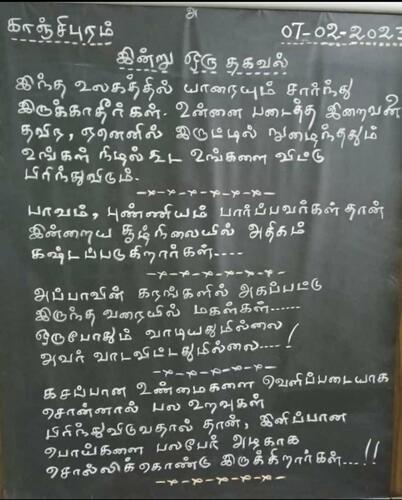 அ
காஞ்சிபுரம் 07-02-2023
இன்று ஒரு தகவல்
இந்த உலகத்தில் யாரையும் சார்ந்து
இருக்காதீர்கள். உன்னை படைத்த இறைவன்
தவிர, ஏனெனில் இருட்டில் நுழைந்ததும்
உங்கள் நிழல் கூட உங்களை விட்டு
பிரிந்துவிடும்.
பாவம், புண்ணியம் பார்ப்பவர்கள் தான்
இன்றைய சூழ்நிலையில் அதிகம்
கஷ்டப்படுகிறார்கள்----
அப்பாவின் கரங்களில் அகப்பட்டு
இருந்த வரையில் மகள்கள்......
ஒருபோதும் வாடியதுமில்லை
அவர் வாடவிட்டதுமில்லை....!
கசப்பான உண்மைகளை வெளிப்படையாக
சொன்னால் பல உறவுகள்
பிரிந்துவிடுவதால் தான், இனிப்பான
பொய்களை பலபேர் அடிகாக
சொல்லிக்கொண்டு இருக்கிறார்கள்....!!